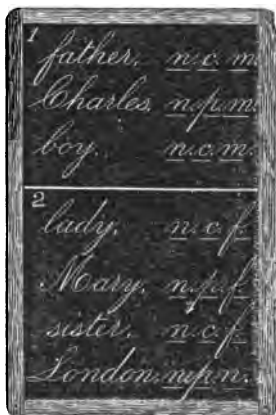 1
father. n. c. m.
Charles. n. p. m.
boy. n. c. m.
2
lady. n. c. f.
Mary. n. p. f.
sister. n. c. f.
London. n. p. n.